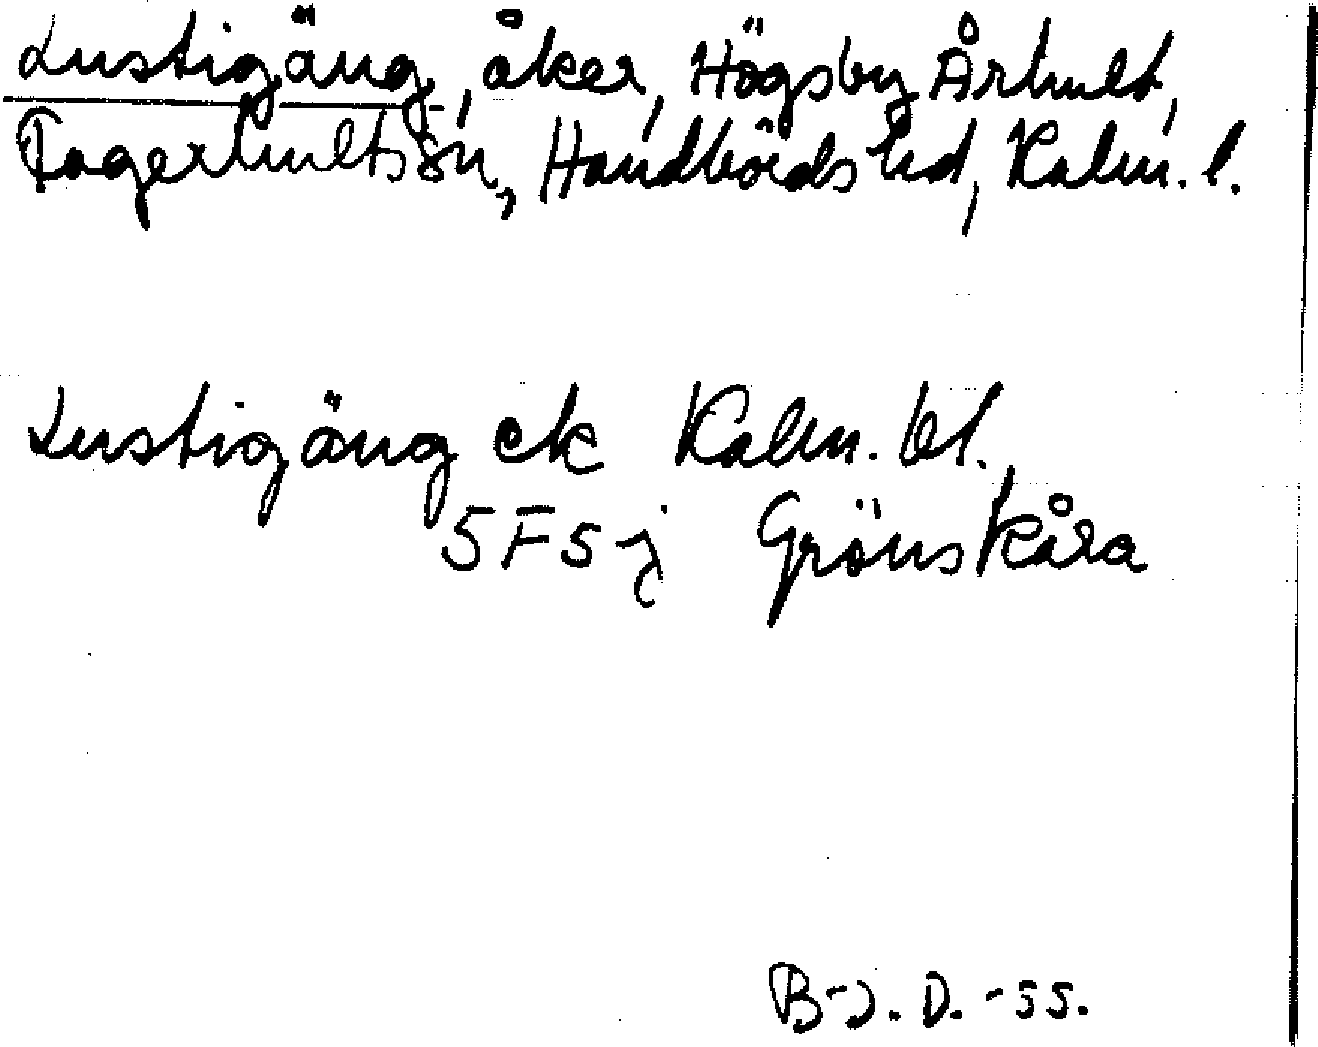 Lustigäng, åker, Högsby Århult,
Fagerhults sn, Handbörds hd, Kalm. l.
Lustigäng ek Kalm. bl.
5 F 5 j Grönskåra
B-J. D. -55.